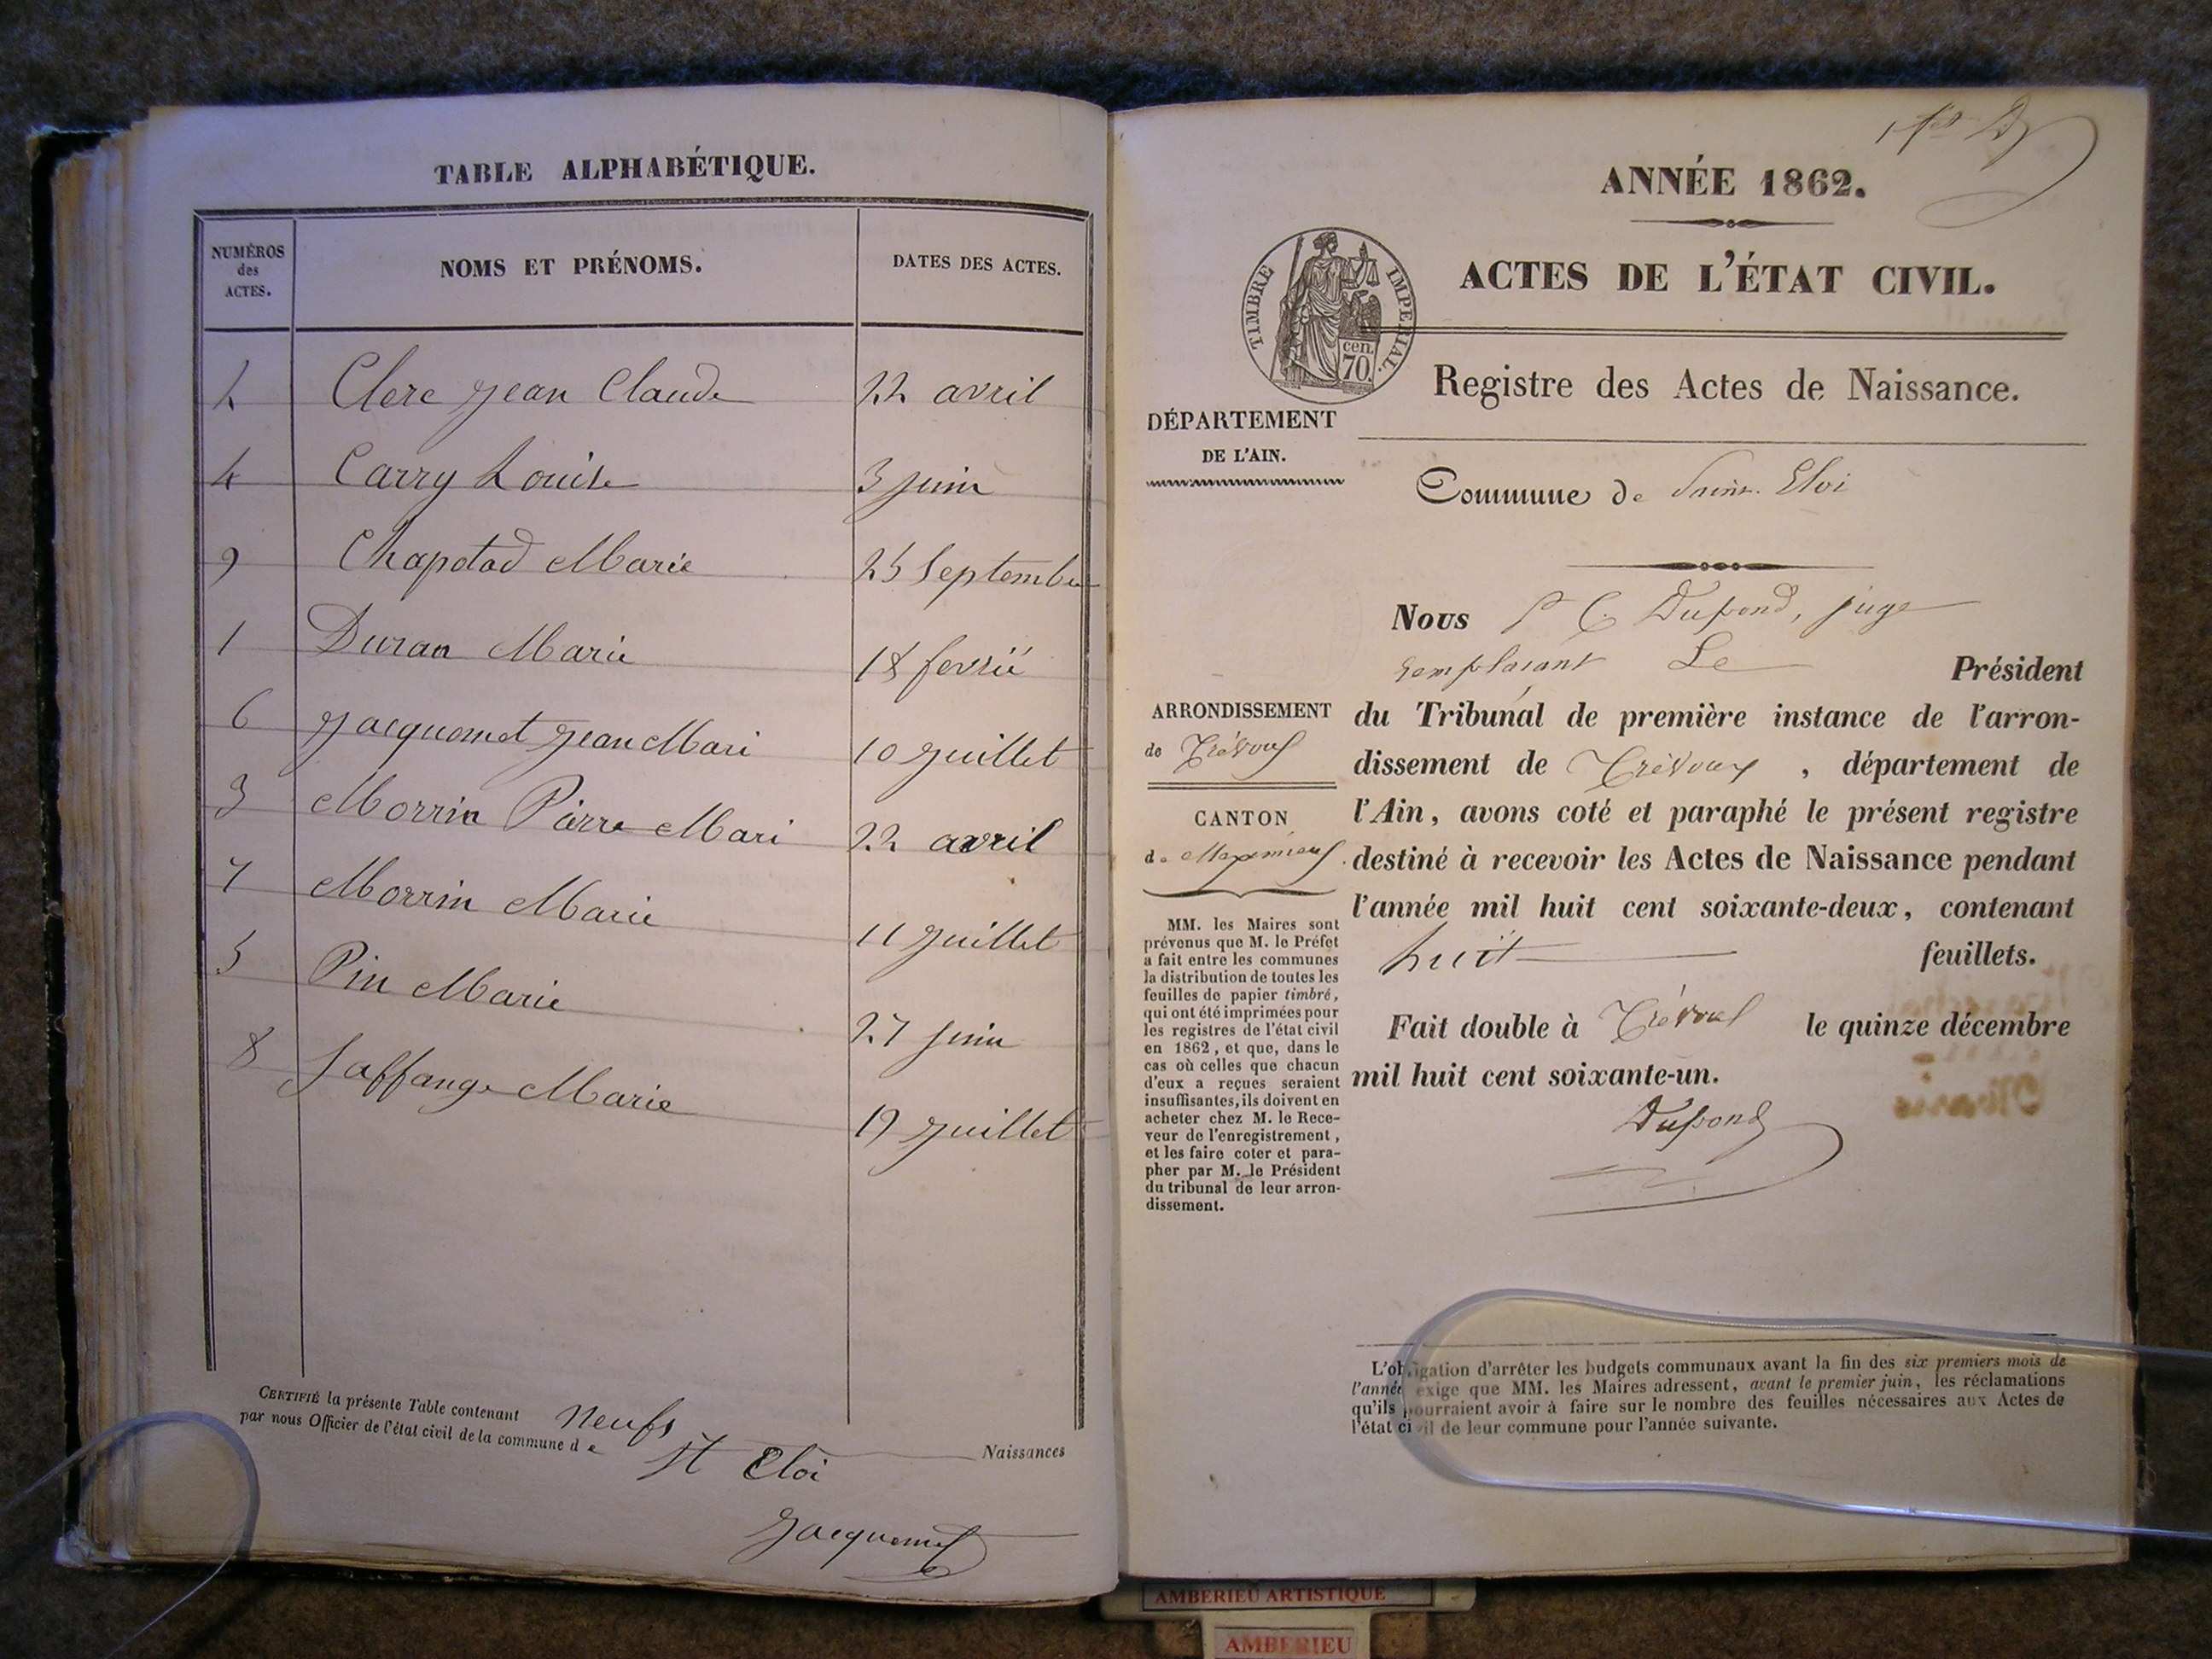 TABLE ALPHABÉTIQUE.
NUMÉROS des ACTES.
NOMS ET PRÉNOMS.
DATES DES ACTES.
2 Clerc Jean Claude 22 avril
4 Carry Louise 3 juin
9 Chapotad Marie 25 Septembre
1 Duran Marie 18 fevrié
6 Jacquemet Jean Mari 10 Juillet
3 Morrin Pierre Mari 22 avril
7 Morrin Marie 11 Juillet
5 Pin Marie 27 juin
8 Saffange Marie 19 Juillet
CERTIFIÉ la présente Table contenant neufs Naissances
par nous Officier de l'état civil de la commune de St Eloi
Jacquemet
ANNÉE 1862.
ACTES DE L'ÉTAT CIVIL.
TIMBRE IMPERIAL.
cen.
70.
Registre des Actes de Naissance.
DÉPARTEMENT
DE L'AIN.
Commune de Saint Eloi
Nous Dupond, juge
remplacant Le Président
ARRONDISSEMENT
de Trévoux
CANTON
de Meximieux.
du Tribunal de première instance de l'arron-
dissement de Trévoux, département de
l'Ain, avons coté et paraphé le présent registre
destiné à recevoir les Actes de Naissance pendant
l'année mil huit cent soixante-deux, contenant
huit feuillets.
Fait double à Trévoux le quinze décembre
mil huit cent soixante-un.
Dupond
MM. les Maires sont
prévenus que M. le Préfet
a fait entre les communes
la distribution de toutes les
feuilles de papier timbré,
qui ont été imprimées pour
les registres de l'état civil
en 1862, et que, dans le
cas où celles que chacun
d'eux a reçues seraient
insuffisantes, ils doivent en
acheter chez M. le Rece-
veur de l'enregistrement,
et les faire coter et para-
pher par M. le Président
du tribunal de leur arron-
dissement.
L'obligation d'arrêter les budgets communaux avant la fin des six premiers mois de
l'année exige que MM. les Maires adressent, avant le premier juin, les réclamations
qu'ils pourraient avoir à faire sur le nombre des feuilles nécessaires aux Actes de
l'état civil de leur commune pour l'année suivante.
AMBERIEU ARTISTIQUE
AMBERIEU